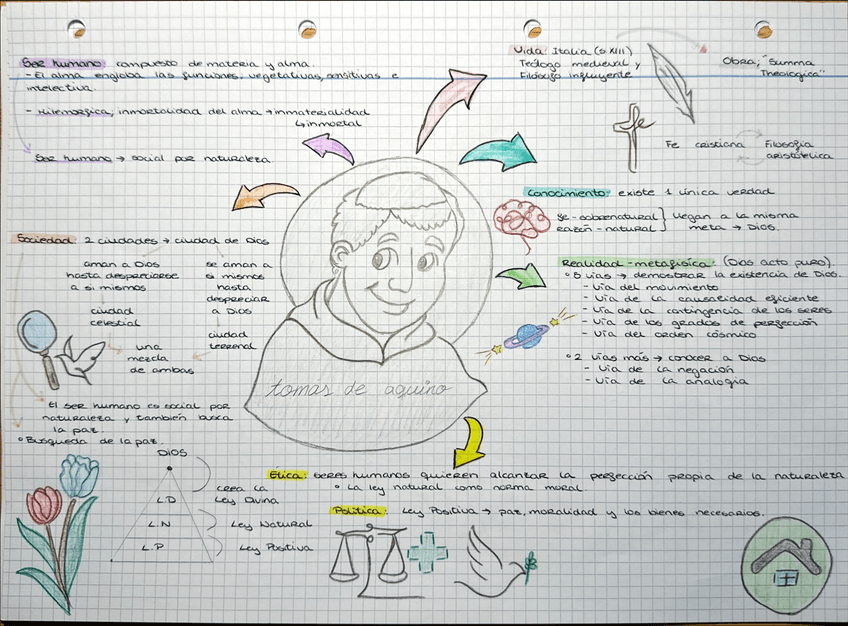 Ser humano: compuesto de materia y alma.
- El alma engloba las funciones, vegetativas, sensitivas e
intelectiva.
- Hilemorfica, inmortalidad del alma → inmaterialidad
↳ inmortal
Ser humano → social por naturaleza
Vida: Italia (s XIII)
Teólogo medieval y
Filósofo influyente
Obra, "Summa
Theologica"
fe
Fe cristiana
Filosofía
aristotélica
Conocimiento: existe 1 única verdad
fe - sobrenatural
razón - natural
llegan a la misma
meta → Dios.
Sociedad 2 ciudades → ciudad de Dios
aman a Dios
hasta despreciarse
a si mismos
ciudad
celestial
se aman a
si mismos
hasta
despreciar
a Dios
ciudad
terrenal
una
mezcla
de ambas
Realidad-metafísica: (Dios acto puro).
° 5 vías → demostrar la existencia de Dios.
- Vía del movimiento
- Vía de la causalidad eficiente
- Vía de la contingencia de los seres
- Vía de los grados de perfección
- Vía del orden cósmico
° 2 vías más → conocer a Dios
- Vía de la negación
- Vía de la analogia
tomás de aquino
El ser humano es social por
naturaleza y también busca
la paz.
° Búsqueda de la paz.
DIOS
crea la
L.D Ley Divina
L.N Ley Natural
L.P Ley Positiva
Etica: seres humanos quieren alcanzar la perfección propia de la naturaleza
° La ley natural como norma moral
Política: Ley Positiva → paz, moralidad y los bienes necesarios.